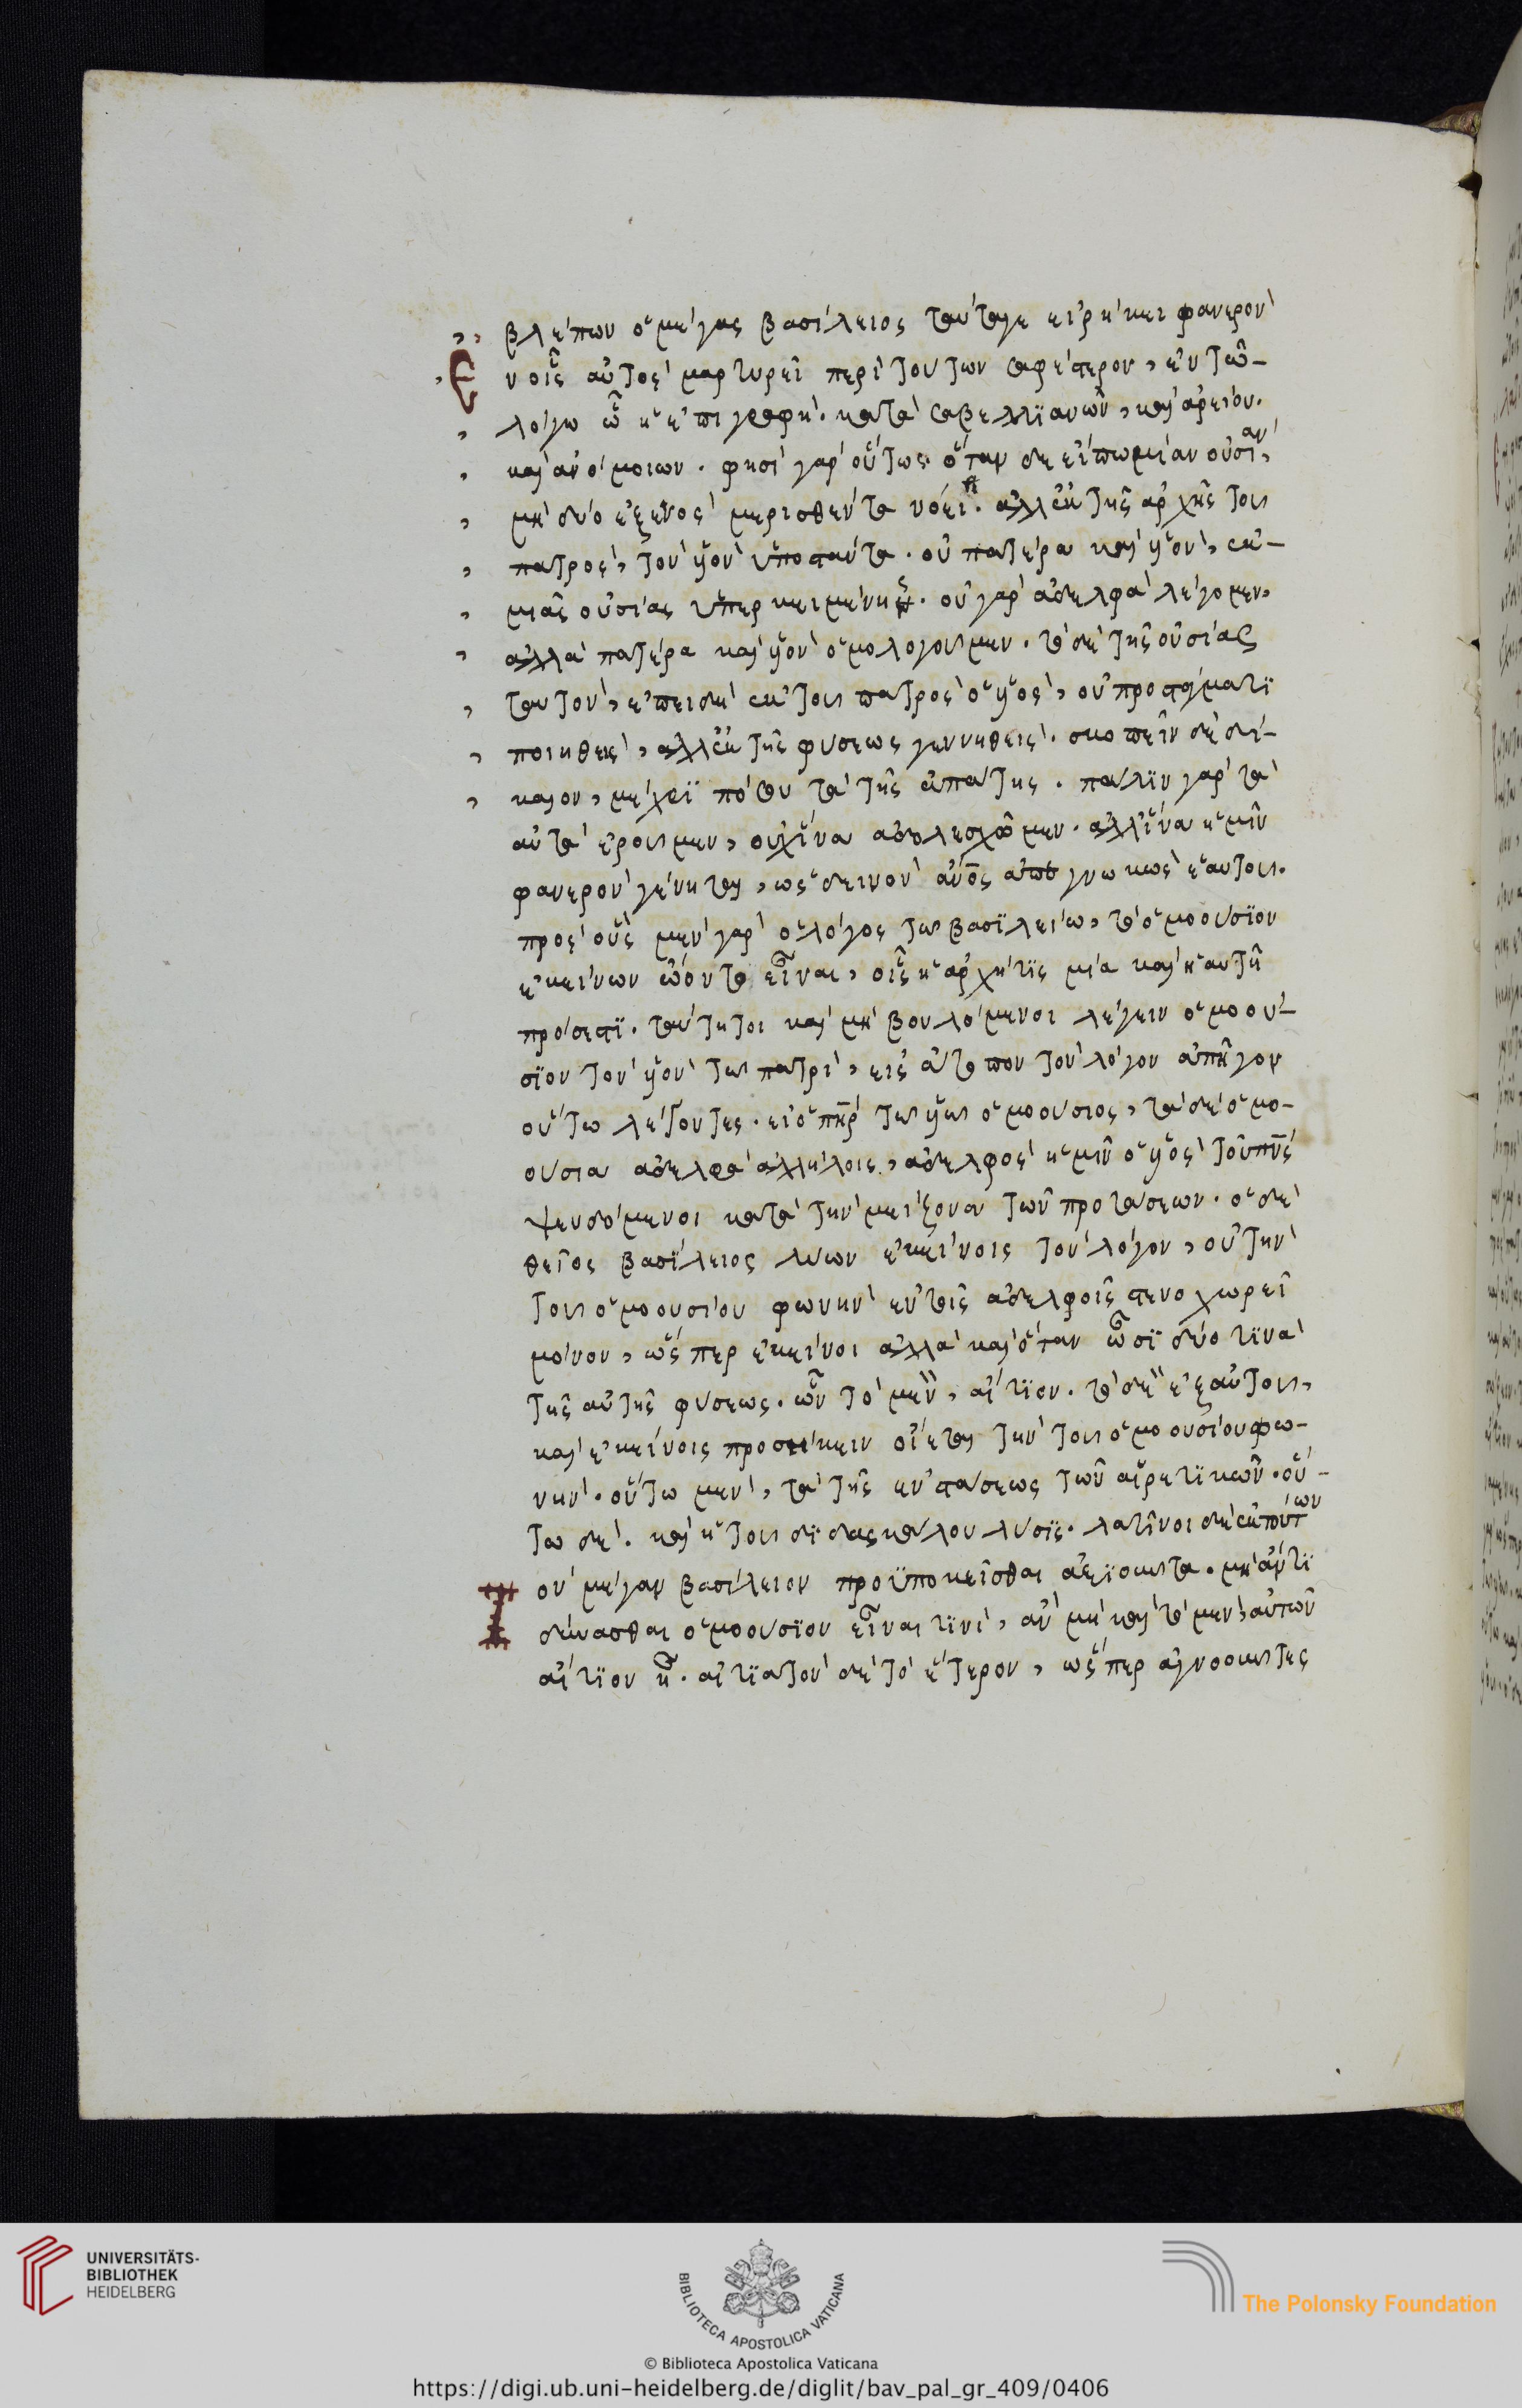 βλέπων ὁ μέγας βασίλειος ταῦτά γε εἰρήκει φανερὸν
ἐν οἷς αὐτὸς μαρτυρεῖ περὶ τούτων σαφέστερον, ἐν τῶ
λόγω ὧ ἡ ἐπιγραφὴ. κατὰ σαβελλϊανῶν, καὶ ἀρείου.
καὶ ἀνομοίων. φησὶ γὰρ οὕτως. ὅταν δὲ εἴπω μίαν οὐσίαν,
μὴ δύο ἐξ ἑνὸς μερισθέντα νόει. ἀλλ' ἐκ τῆς ἀρχῆς τοῦ
πατρὸς, τὸν υἱὸν ὑποστάντα. οὐ πατέρα καὶ υἱὸν, ἐκ
μιᾶς οὐσίας ὑπερκειμένης. οὐ γὰρ ἀδελφὰ λέγομεν,
ἀλλὰ πατέρα καὶ υἱὸν ὁμολογοῦμεν. τὸ δὲ τῆς οὐσίας
ταυτὸν, ἐπειδὴ ἐκ τοῦ πατρὸς ὁ υἱὸς, οὐ προστάγματϊ
ποιηθεὶς, ἀλλ' ἐκ τῆς φύσεως γεννηθείς. σκοπεῖν δὲ δί-
καιον, μέχρϊ πόσου τὰ τῆς ἀπάτης. πάλϊν γὰρ τὰ
αὐτὰ ἐροῦμεν, οὐχ ἵνα ἀδολεσχῶμεν. ἀλλ' ἵνα ἡμῖν
φανερὸν γένηται, ὡς δεινὸν ἄνος ἀπεγνωκὼς ἑαυτοῦ.
πρὸς οὓς μὲν γὰρ ὁ λόγος τῶ βασϊλείω, τὸ ὁμοούσϊον
ἐκείνων ὤοντο εἶναι, οἷς ἡ ἀρχή τϊς μία καὶ ἡ αὐτὴ
πρόσεστϊ. ταύτη τοι καὶ μὴ βουλόμενοι λέγειν ὁμοού-
σϊον τὸν υἱὸν τῶ πατρὶ, εἰς ἄτοπον τὸν λόγον ἀπῆγον
οὕτω λέγοντες. εἰ ὁ πηρ τῶ υἱῶ ὁμοούσιος, τὰ δὲ ὁμο-
ούσια ἀδελφὰ ἀλλήλοις, ἀδελφὸς ἡμῖν ὁ υἱὸς τοῦ πρς
ψευδόμενοι κατὰ τὴν μείζονα τῶν προτάσεων. ὁ δὲ
θεῖος βασίλειος λύων ἐκείνοις τὸν λόγον, οὐ τὴν
τοῦ ὁμοουσίου φωνὴν ἐν τοῖς ἀδελφοῖς στενοχωρεῖ
μόνον, ὥσπερ ἐκεῖνοι ἀλλὰ καὶ ὅταν ὦσϊ δύο τϊνὰ
τῆς αὐτῆς φύσεως. ὧν τὸ μὲν, αἴτϊον. τὸ δὲ ἐξ αὐτοῦ,
καὶ ἐκείνοις προσήκειν οἴεται τὴν τοῦ ὁμοουσίου φω-
νήν. οὕτω μὲν, τὰ τῆς ἐνστάσεως τῶν αἱρετϊκῶν. οὕ-
τω δὲ. καὶ ἡ τοῦ δϊδασκάλου λύσϊς. λατῖνοι δὲ ἐκ τούτων
τὸν μέγαν βασίλειον προϋποκεῖσθαι ἀξϊοῦντα. μὴ ἄν τϊ
δύνασθαι ὁμοούσϊον εἶναί τϊνι, ἂν μὴ καὶ τὸ μὲν, αὐτῶν
αἴτϊον ἦ. αἰτϊατὸν δὲ τὸ ἕτερον, ὥσπερ ἀγνοοῦντες
UNIVERSITÄTS-
BIBLIOTHEK
HEIDELBERG
BIBLIOTECA APOSTOLICA VATICANA
The Polonsky Foundation
© Biblioteca Apostolica Vaticana
https://digi.ub.uni-heidelberg.de/diglit/bav_pal_gr_409/0406